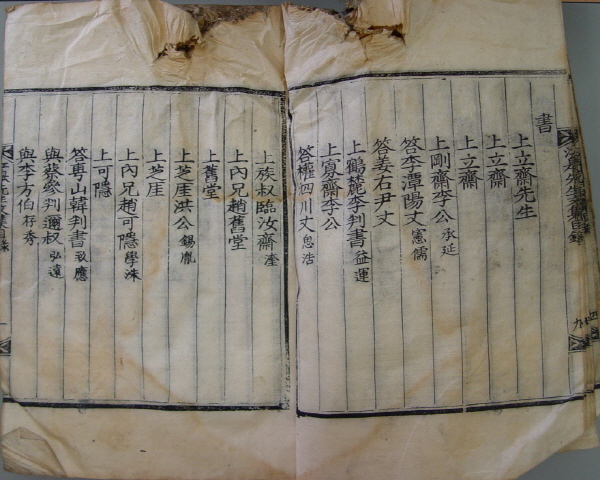 書
上立齋先生
上立齋
上立齋
上剛齋李公 承延
答李潭陽丈 憲儒
答姜右尹丈
上鶴麓李判書 益運
上寡齋李公
答權四川丈 思浩
上族叔臨汝齋
上內兄趙舊堂
上舊堂
上芝厓洪公 錫胤
上芝厓
上內兄趙可隱 學洙
上可隱
答專山韓判書 致應
與蔡參判邇叔 弘遠
與李方伯 存秀